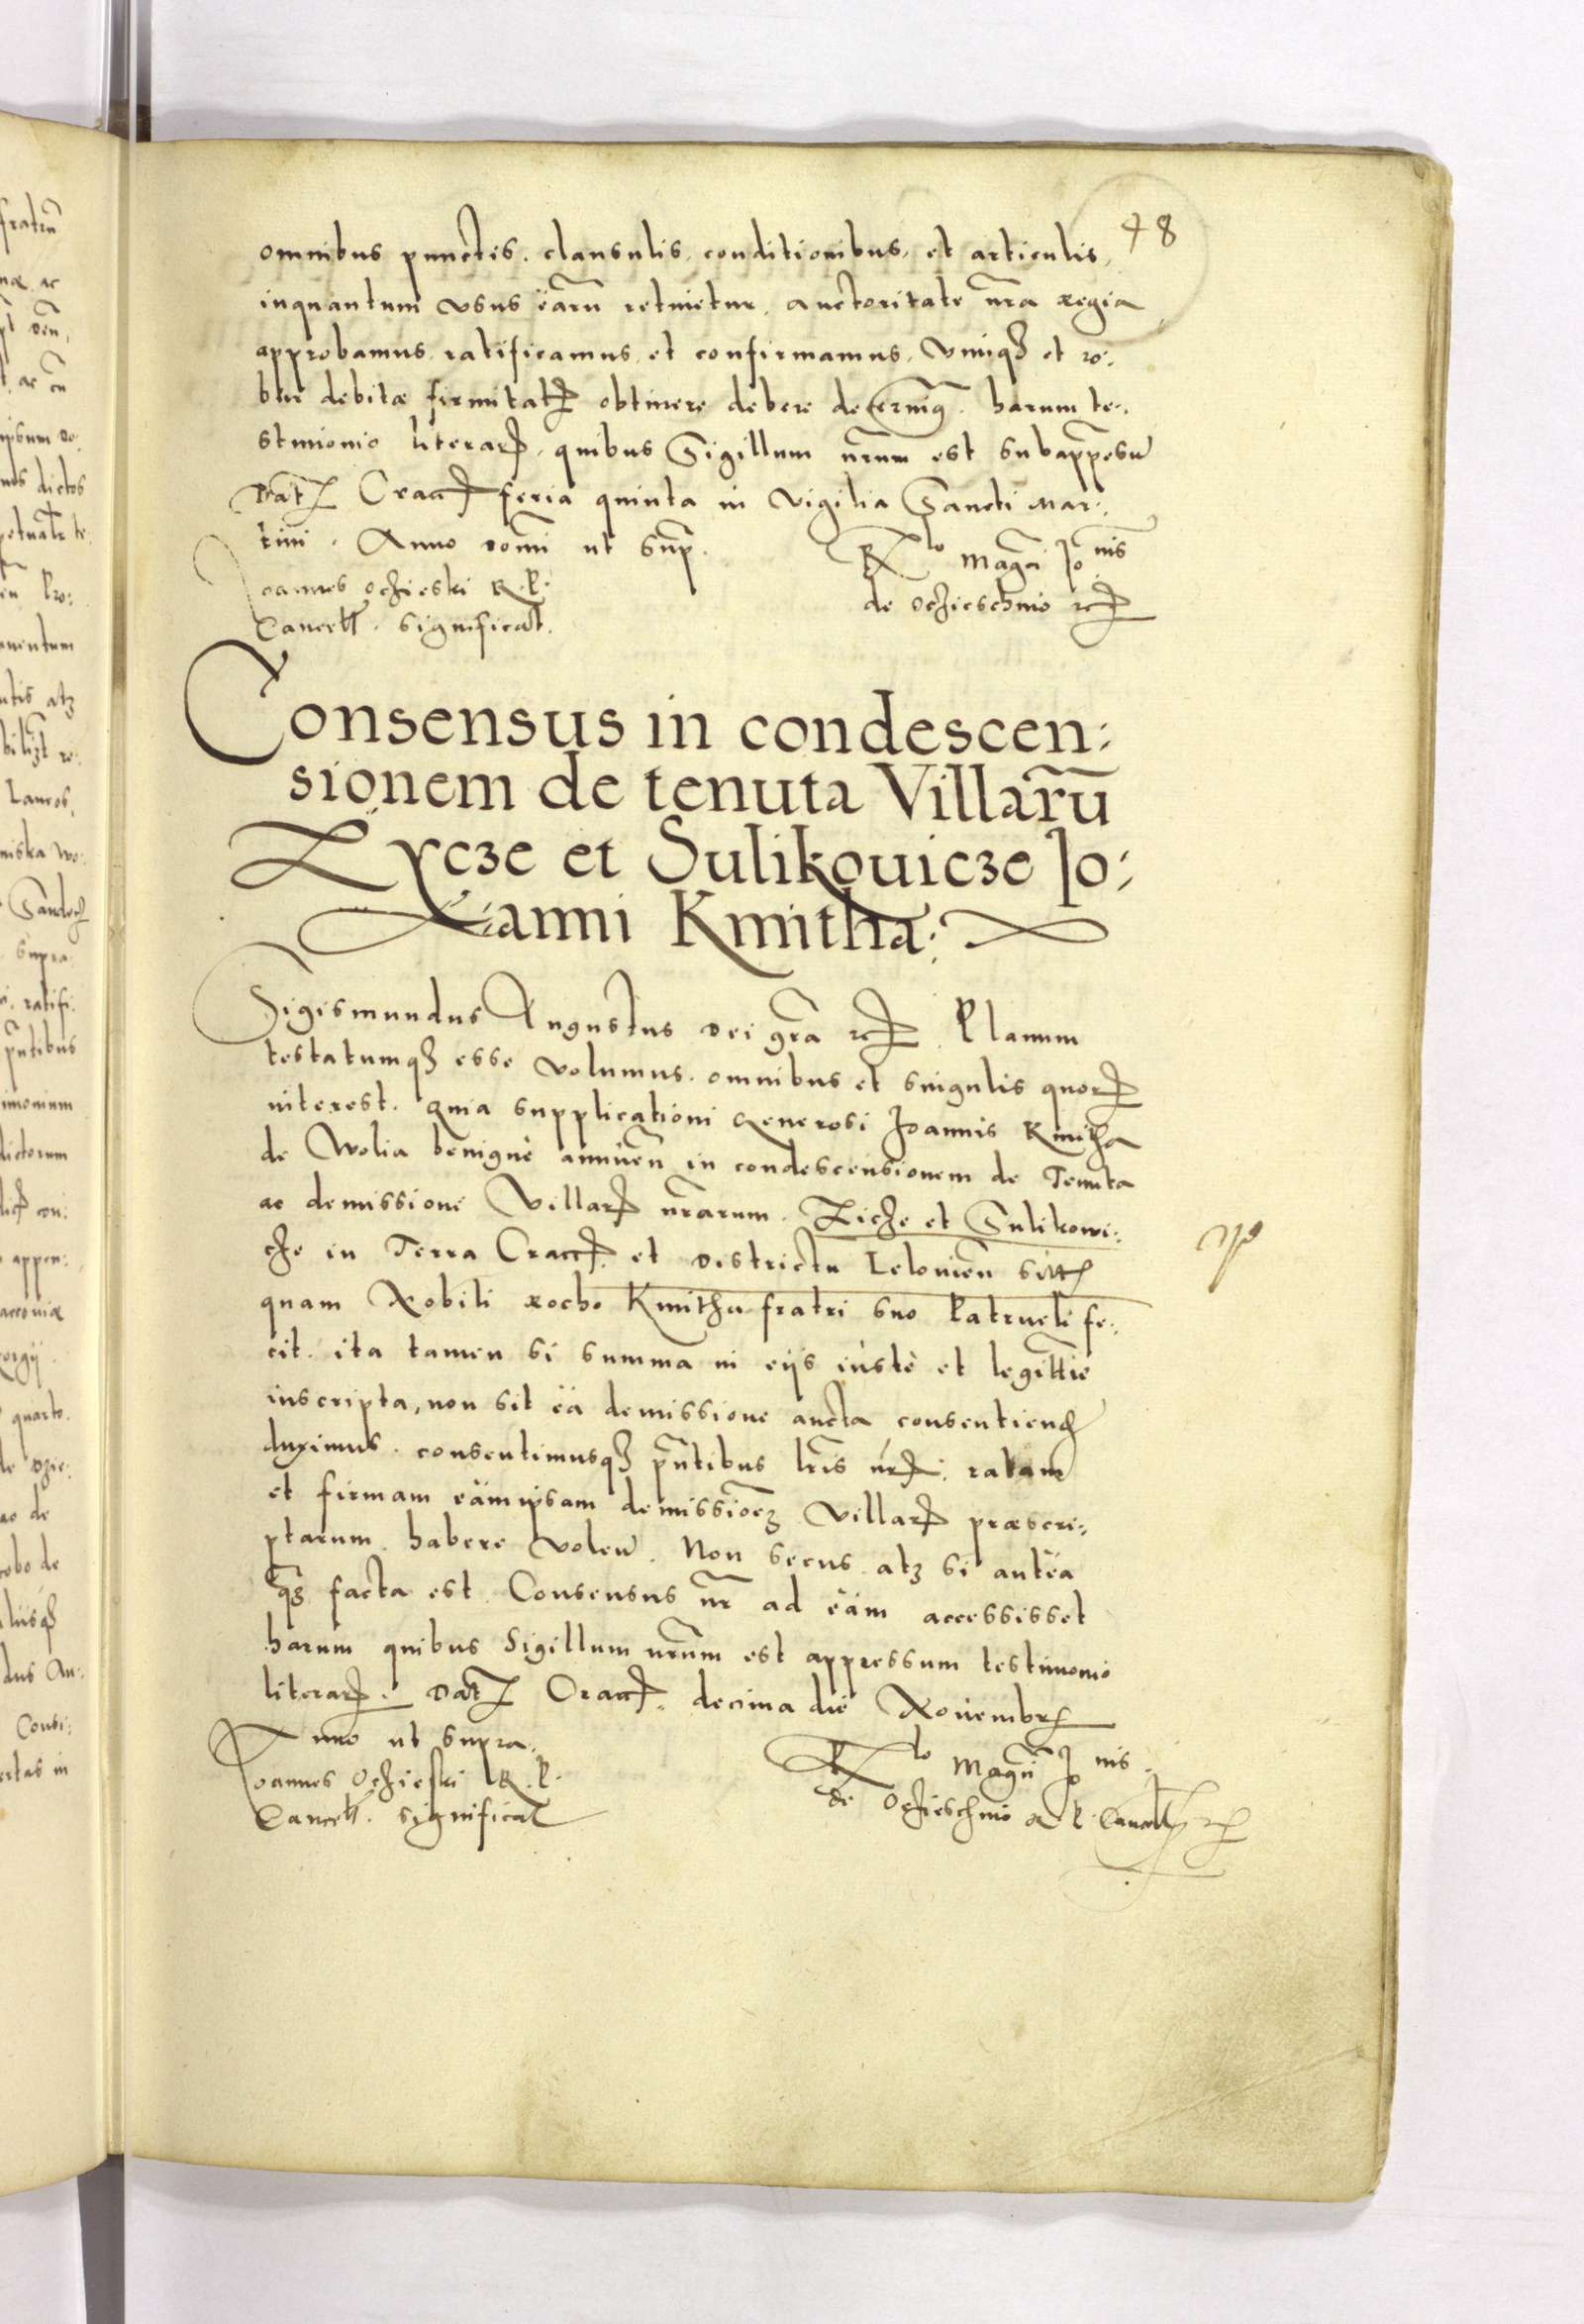 48
omnibus punctis. clausulis, conditionibus, et articulis,
inquantum vsus eäru͂ retinetur, auctoritate nr͂a regia
approbamus, ratificamus, et confirmamus, et ro:
bur debitæ firmitatꝭ obtinere debere decerniꝰ. harum te:
stimonio literarꝝ, quibus Sigillum nr͂um est subappresuꝫ
Datꝭ Craccꝭ feria quinta in vigilia Sancti Mar:
tini. Anno Dom͂i ut supꝛ.
Rᵒ Mag͂ci Joⁿⁱˢ
Joannes Oczieski R. P.
de Oczieschino ꝛcꝭ
Cancellꝭ. significat.
Consensus in condescen:
sionem de tenuta Villaru͂
Zycze et Sulikouicze Jo:
anni Kmitha:
Sigismundus Augustus Dei gr͂a ꝛcꝭ. Planum
testatumqꝫ esse volumus. omnibus et singulis quorꝝ
interest. Quia supplicationi Generosi Joannis Kmitha
de Wolia benignè annuen͂ in condescensionem de Tenuta
ac demissione Villarꝝ nr͂arum. Zicze et Sulikowi:
cze in Terra Craccꝭ. et Districtu Lelouien͂ sitꝭ
quam Nobili Rocho Kmitha fratri suo Patrueli fe:
cit. ita tamen si summa in eijs iustè et legitt͂ie
inscripta, non sit eä demissione aucta consentiendꝭ
duximus. consentimusqꝫ pn͂tibus lr͂is nr͂ꝭ. ratam
et firmam eämipsam demission͂eꝫ Villarꝝ præscri:
ptarum habere volen͂. Non secus atꝫ si anteä
qꝫ facta est Consensus nr͂ ad eäm accessisset
harum quibus Sigillum nr͂um est appressum testimonio
literarꝝ. Datꝭ Craccꝭ. decima die Nouembrꝭ
Anno ut supra.
Rᵒ Mag͂ci Joⁿⁱˢ
Joannes Oczieski R. P.
de Oczieschino R P. Cancellꝭ ꝛcꝭ
Cancellꝭ. significat